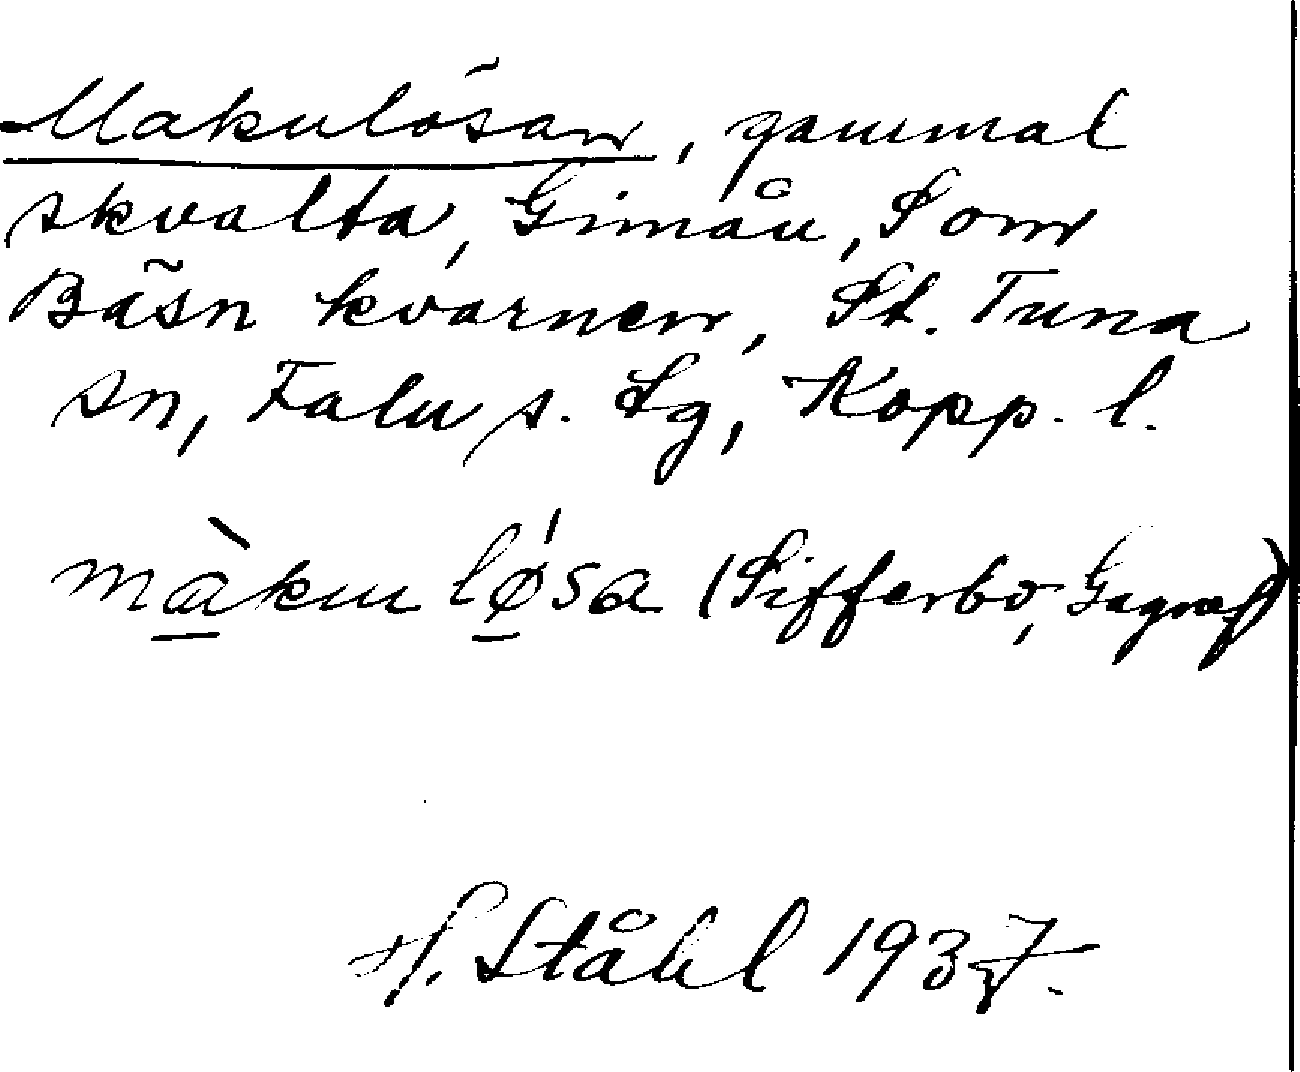 Makulösan, gammal
skvalta, Gimån, Som
Bäsn kvarnen, St. Tuna
sn, Falu s. Lg, Kopp. l.
màku lǿsa (Sifferbo, Gagnef)
H. Ståhl 1937.